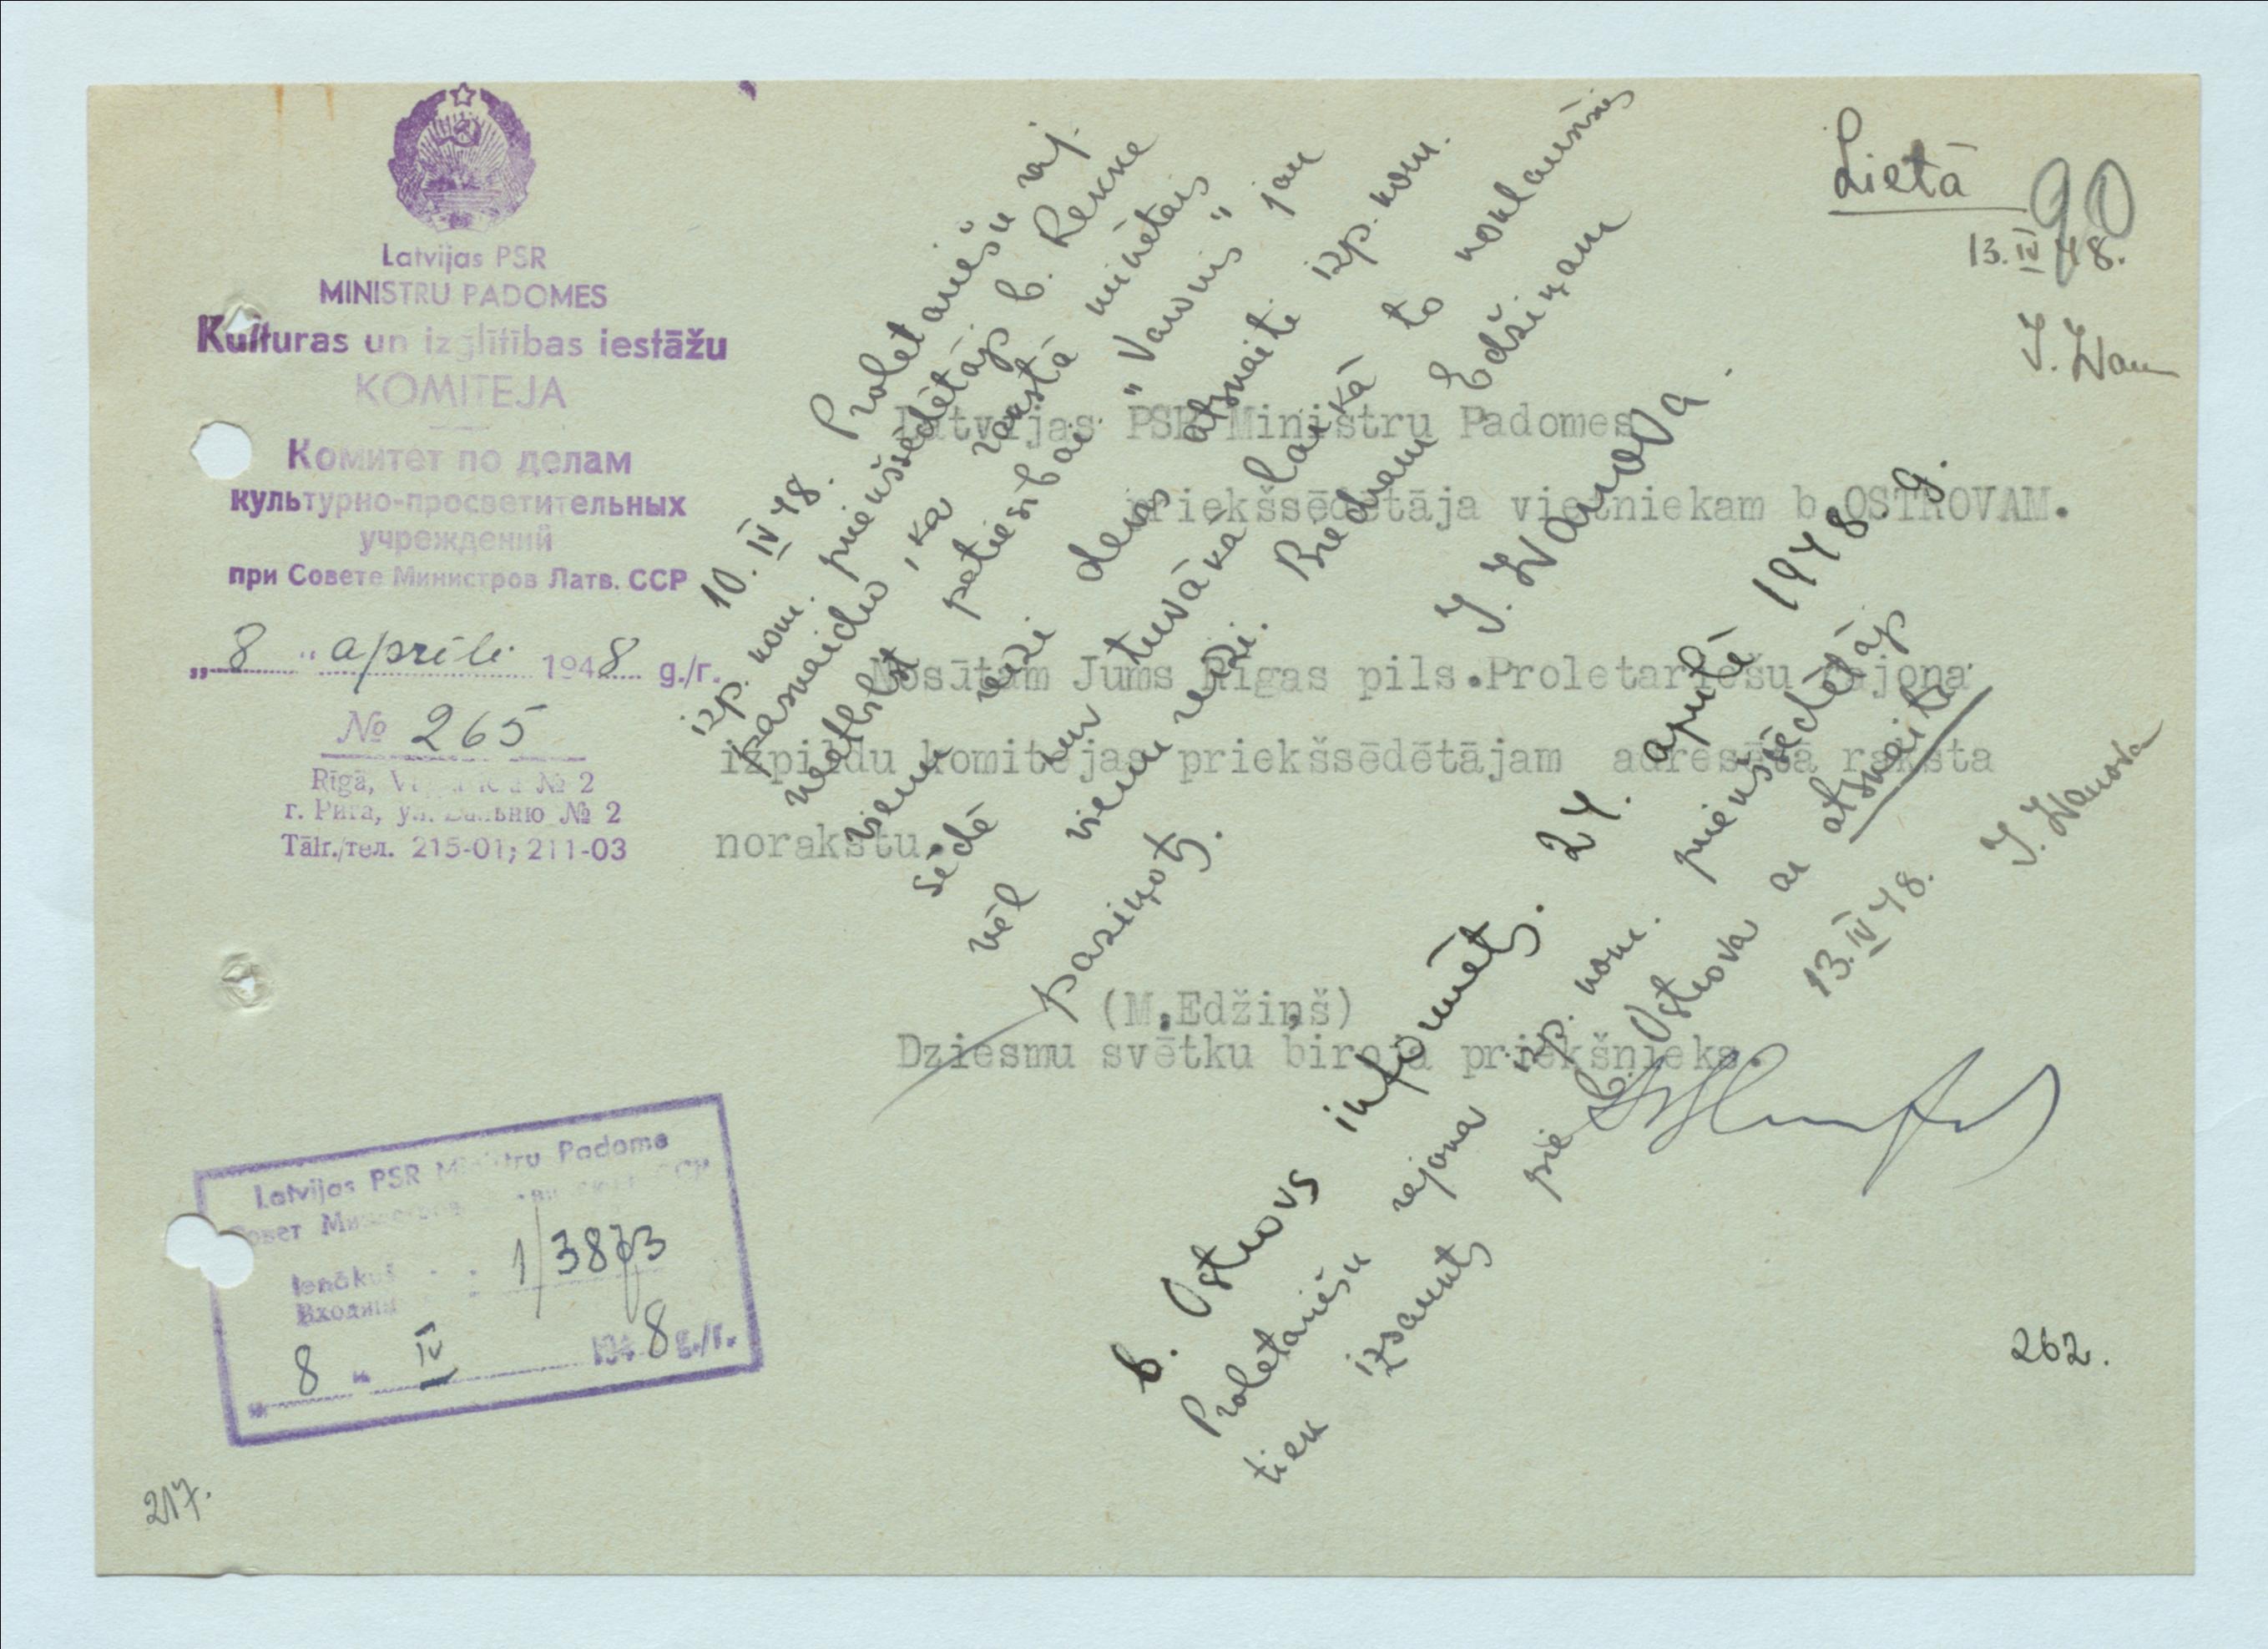 Latvijas PSR
MINISTRU PADOMES
Kulturas un izglītības iestāžu
KOMITEJA
Комитет по делам
культурно-просветительных
учреждений
при Совете Министров Латв. ССР
„ 8 " aprīlī 1948 g./г.
№ 265
Rīgā, № 2
г. Рига, ул. № 2
Tālr./тел. 215-01; 211-03
Lietā
90
13.IV 48.
J. Ivan
Latvijas PSR Ministru Padomes
priekšsēdētāja vietniekam b.OSTROVAM.
Nosūtam Jums Rīgas pils.Proletariešu rajona
izpildu komitejas priekšsēdētājam adresētā raksta
norakstu.
(M.Edžiņš)
Dziesmu svētku biroja priekšnieks.
10. IV 48. Proletariešu raj.
izp. kom. priekšsēdētājs b. Rekke
paskaidro, ka rakstā minētais
neatbilst patiesībai. "Varonis" jau
vienu reizi devas atskaiti izp. kom.
sēdē un tuvākā laikā to noklausīsies
vēl vienu reizi. Biedram Edžiņam
paziņots.
J. Ivanova.
b. Ostrovs informēts. 24. aprīlī 1948. g.
Proletariešu rajona izp. kom. priekšsēdētājs
tiek izsaukts pie b. Ostrova ar atskaiti
13.IV 48. J. Ivanova
Latvijas PSR Ministru Padome
Совет Министров ССР
Ienākus
Входящ
1/3873
„ 8 " IV 1948 g./г.
262.
217.